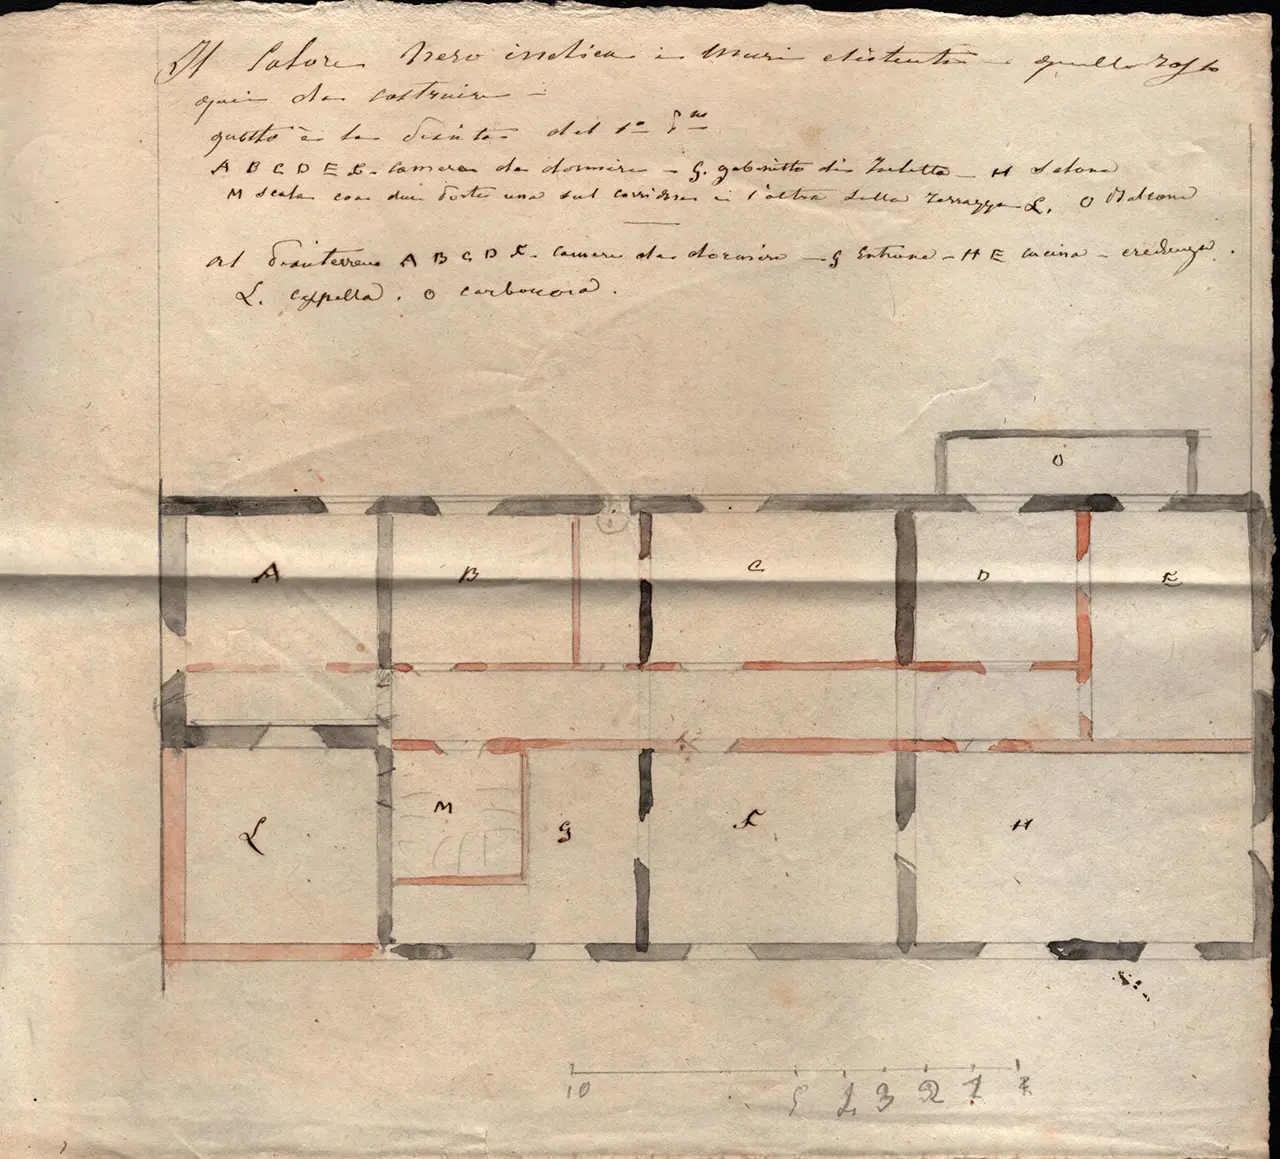 Il Colore Nero indica i Muri esistenti - quello rosso
quei da costruire -
questo è la pianta del 1º
A B C D E F. camere da dormire - G. gabinetto di Toletta - H Salone
M scala con due porte una sul corridore e l'altra sulla terrazza L. O Balcone
Al pianterreno A B C D F. camere da dormire - G Entrone - H E cucina - credenza.
L. cappella. O carboniera.
O
A
B
C
D
E
L
M
G
F
H
10 5 4 3 2 1